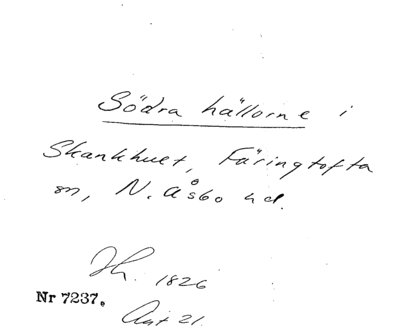 Södra hällorne i
Skankhult, Färingtofta
sn, N. Åsbo hd.
Jh. 1826
Nr 7237.
Ant 21.